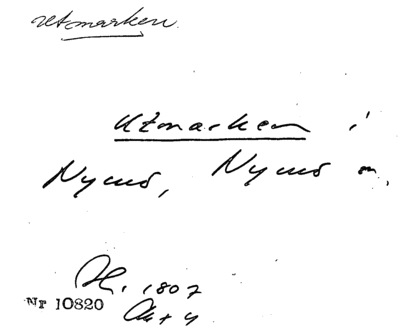 Utmarken
Utmarken i
Nymö, Nymö sn.
1807
Nr 10820
Akt 4